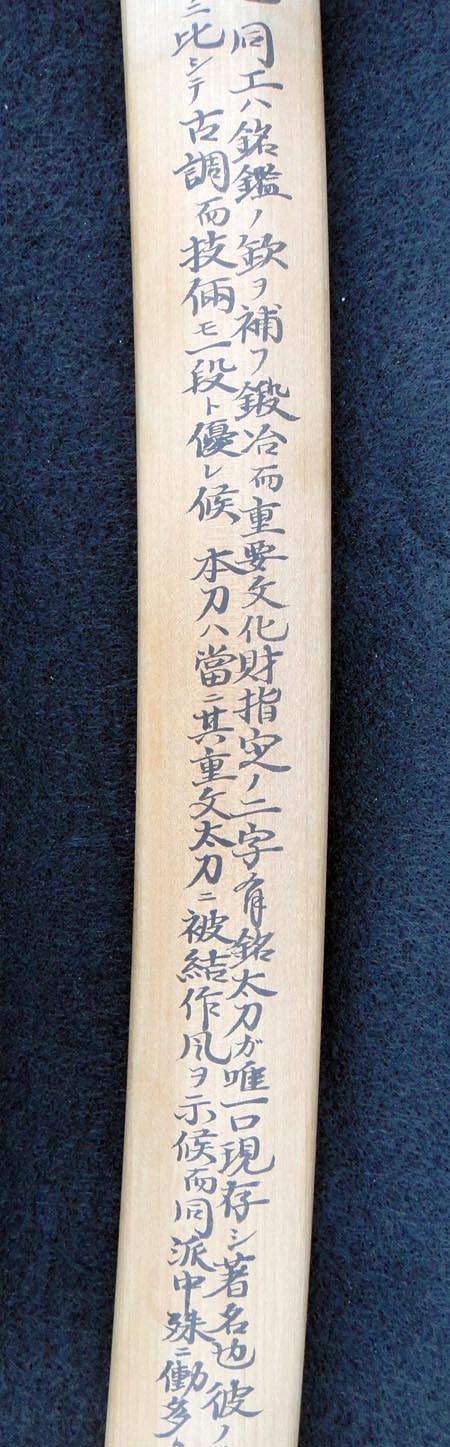 同工ハ銘鑑ノ欽ヲ補フ鍛冶而重要文化財指定ノ二字有銘太刀ガ唯一口現存シ著名也彼ノ
ニ比シテ古調而技倆モ一段ト優レ候 本刀ハ當ニ其重文太刀ニ被結作風ヲ示候而同派中殊ニ働多